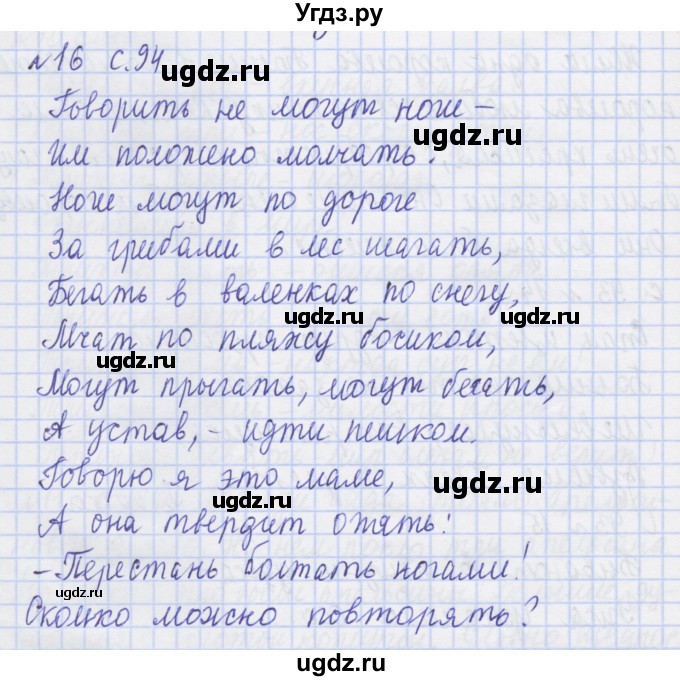 Угдз.ру
№16 с.94
Говорить не могут ноги –
Им положено молчать.
Ноги могут по дороге
За грибами в лес шагать,
Бегать в валенках по снегу,
Мчат по пляжу босиком,
Могут прыгать, могут бегать,
А устав, – идти пешком.
Говорю я это маме,
А она твердит опять:
– Перестань болтать ногами!
Сколко можно повторять?
ugdz.ru
ugdz.ru
ugdz.ru
ugdz.ru
ugdz.ru
ugdz.ru
ugdz.ru
ugdz.ru
ugdz.ru
ugdz.ru